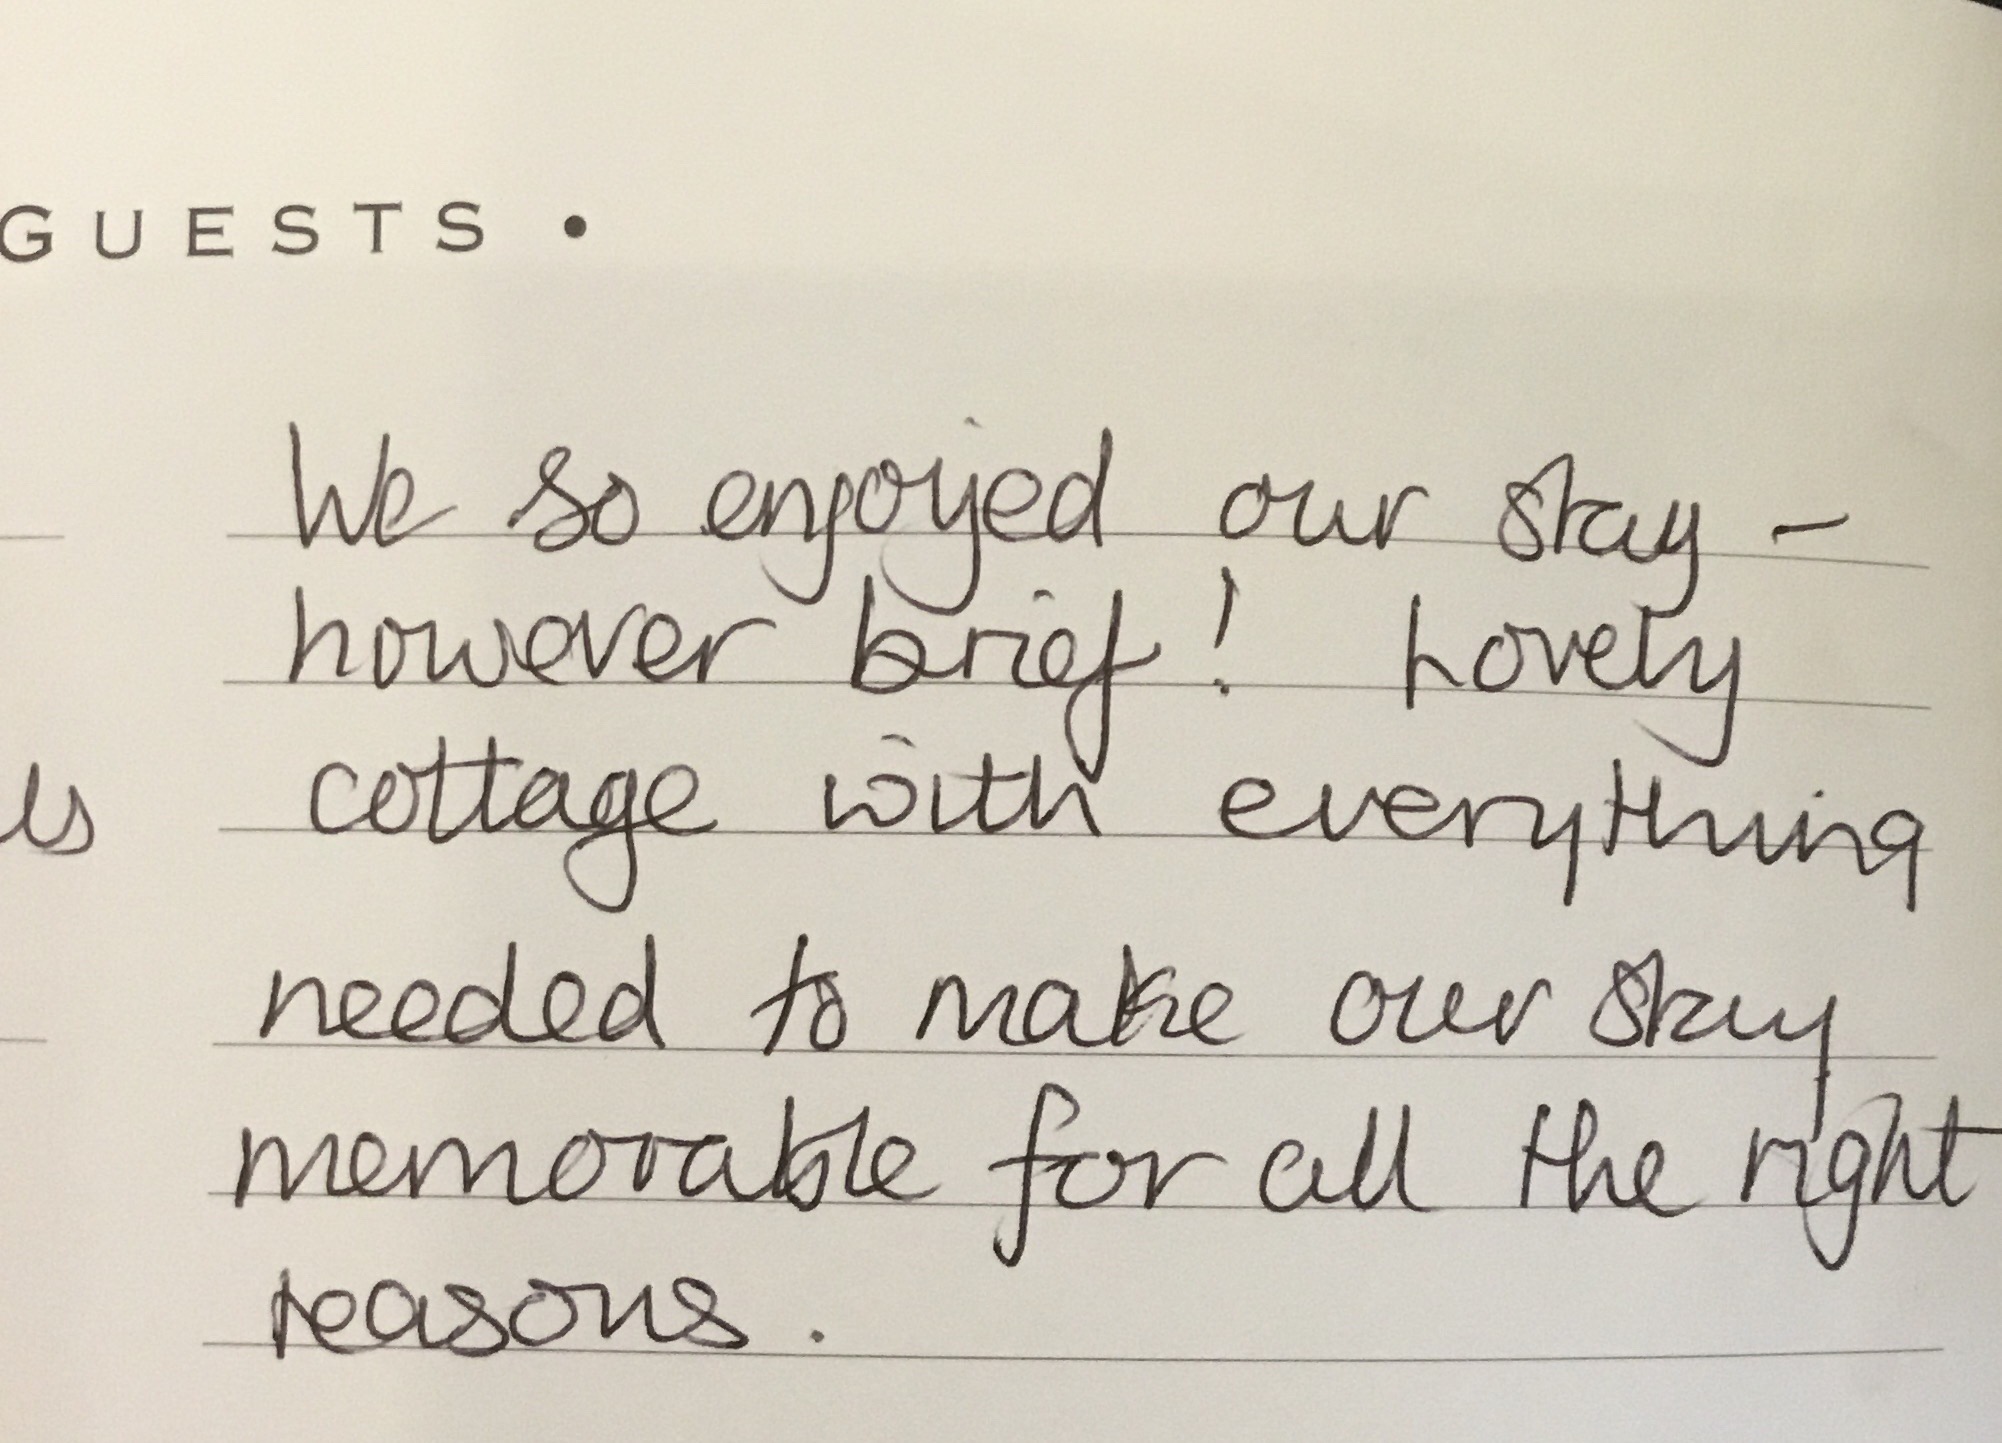 GUESTS •
We so enjoyed our stay –
however brief! Lovely
cottage with everything
needed to make our stay
memorable for all the right
reasons.